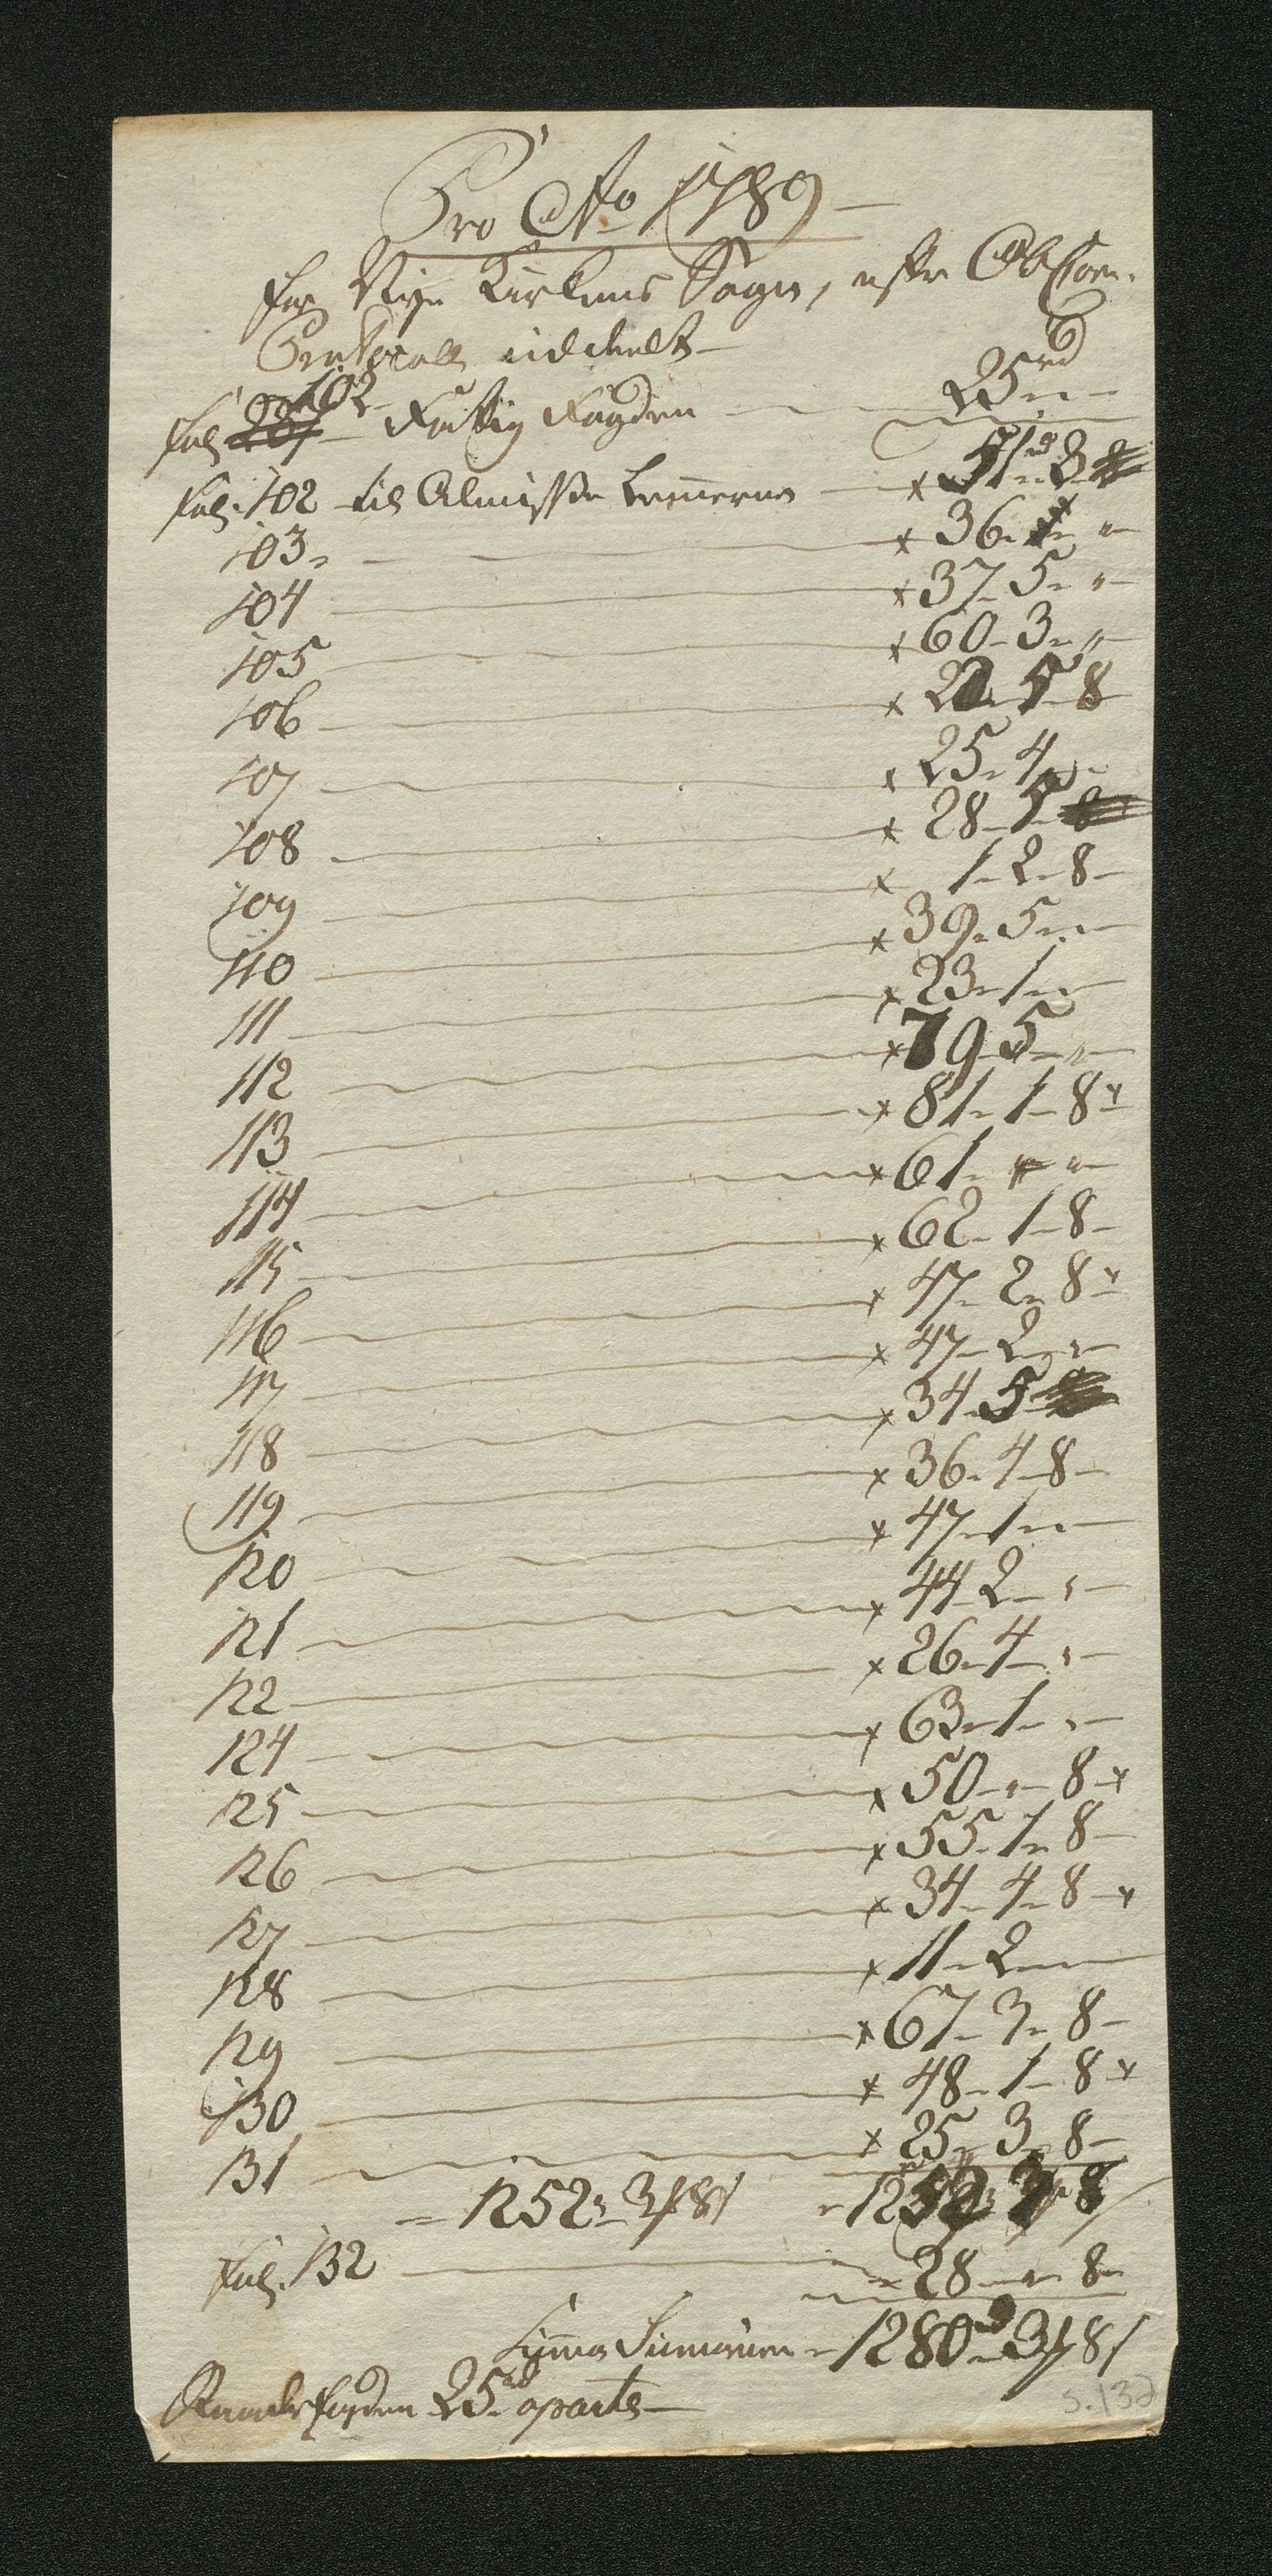 Pro Ao 1789
for Nye Kirkens Sogn, efter Observ.
Protocoll uddeelt
fol: 102 Fattig Fogden 25 rd " "
fol: 102 til Almisse Lemmerne x 51 rd 3
103 x 36 - "
104 x 37 - 5 - "
105 x 60 - 3 - "
106 x 5 - 8
107 x 25 - 4 - "
108 x 28 - 5
109 x 1 - 2 - 8
110 x 39 - 5 - "
111 x 23 - 1 - "
112 x 79 - 5 - "
113 x 81 - 1 - 8 x
114 x 61 - " - "
115 x 62 - 1 - 8
116 x 47 - 2 - 8 x
117 x 47 - 2 - "
118 x 34 - 5
119 x 36 - 4 - 8
120 x 47 - 1 - "
121 x 44 - 2 - "
122 x 26 - 4 - "
124 x 63 - 1 - "
125 x 50 - " - 8 x
126 x 55 - 1 - 8
127 x 34 - 4 - 8 x
128 x 11 - 2 - "
129 x 67 - 3 - 8
130 x 48 - 1 - 8 x
131 x 25 - 3 - 8
= 1252 - 3 ß 8 s 1252 3 8
fol: 132 28 - " - 8
Suma Sumarum - 1280 rd 3 ß 8 s
fogden 25 rd aparte
S. 132